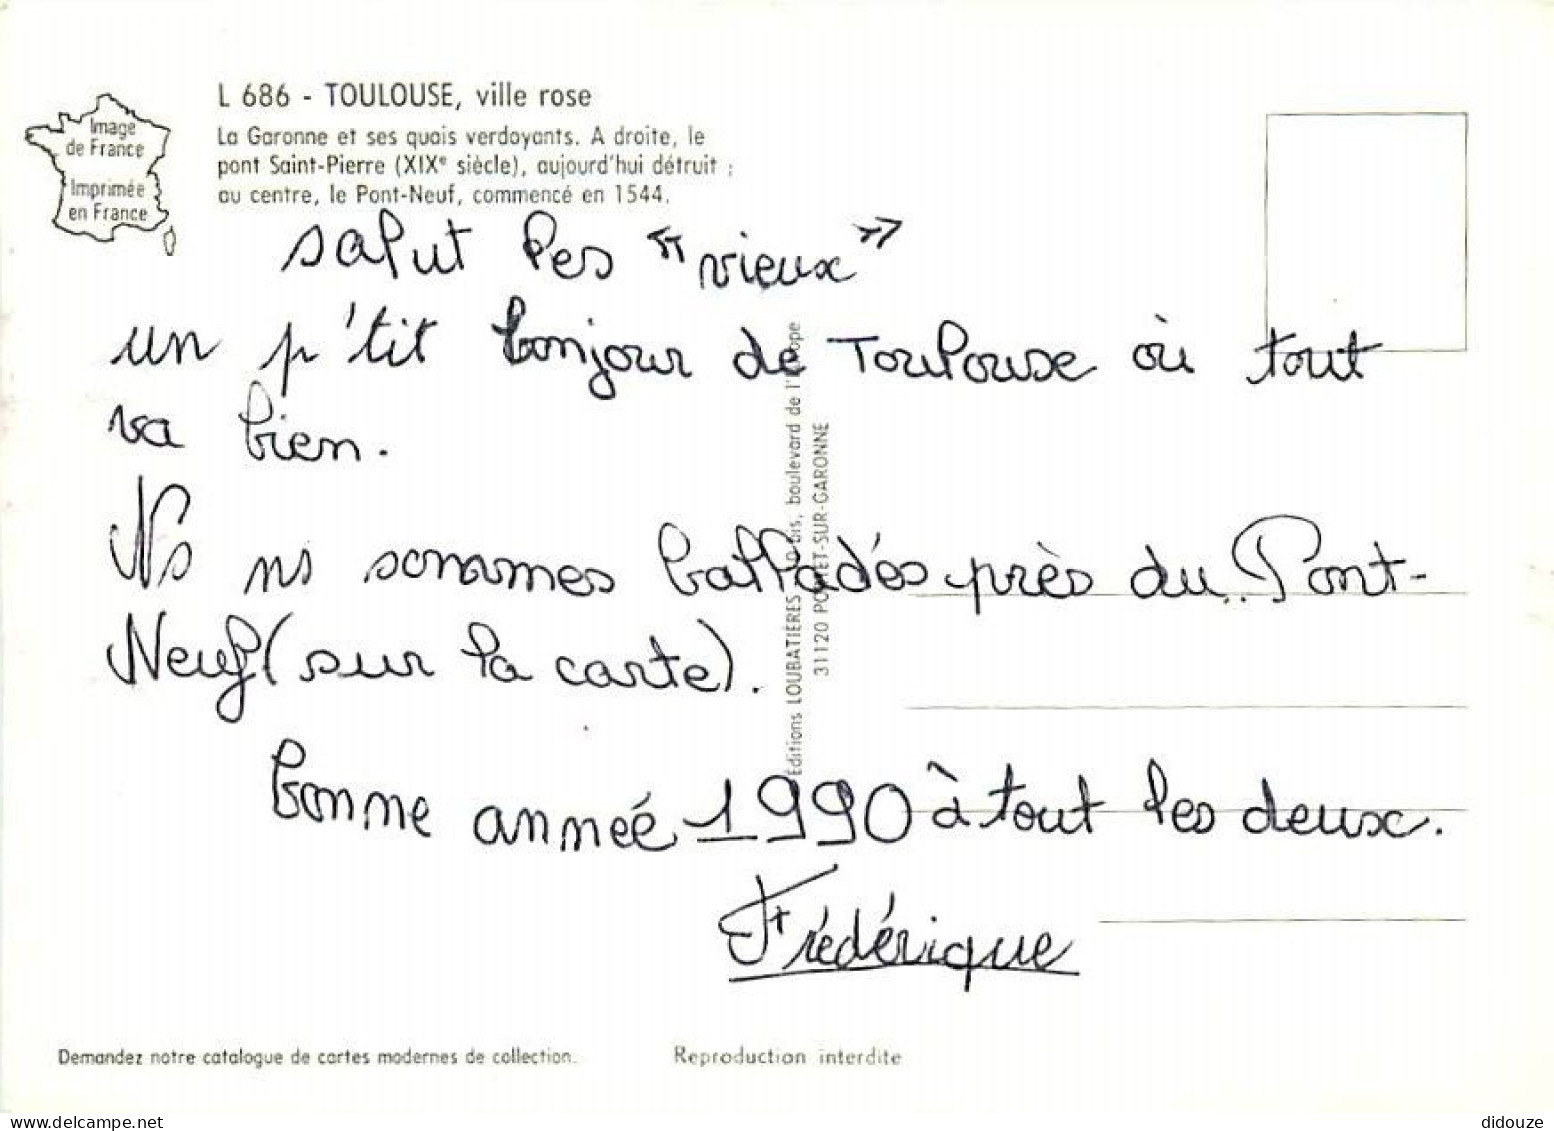 L 686 - TOULOUSE, ville rose
La Garonne et ses quais verdoyants. A droite, le
pont Saint-Pierre (XIXe siècle), aujourd'hui détruit ;
au centre, le Pont-Neuf, commencé en 1544.
Image
de France
Imprimée
en France
salut les "vieux"
un p'tit bonjour de Toulouse où tout
va bien.
Ns ns sommes balladés près du Pont-
Neuf (sur la carte).
bonne année 1990 à tout les deux.
Frédérique
Editions LOUBATIÈRES bis, boulevard de l'Europe
31120 PORTET-SUR-GARONNE
Demandez notre catalogue de cartes modernes de collection.
Reproduction interdite
delcampe.net
didouze